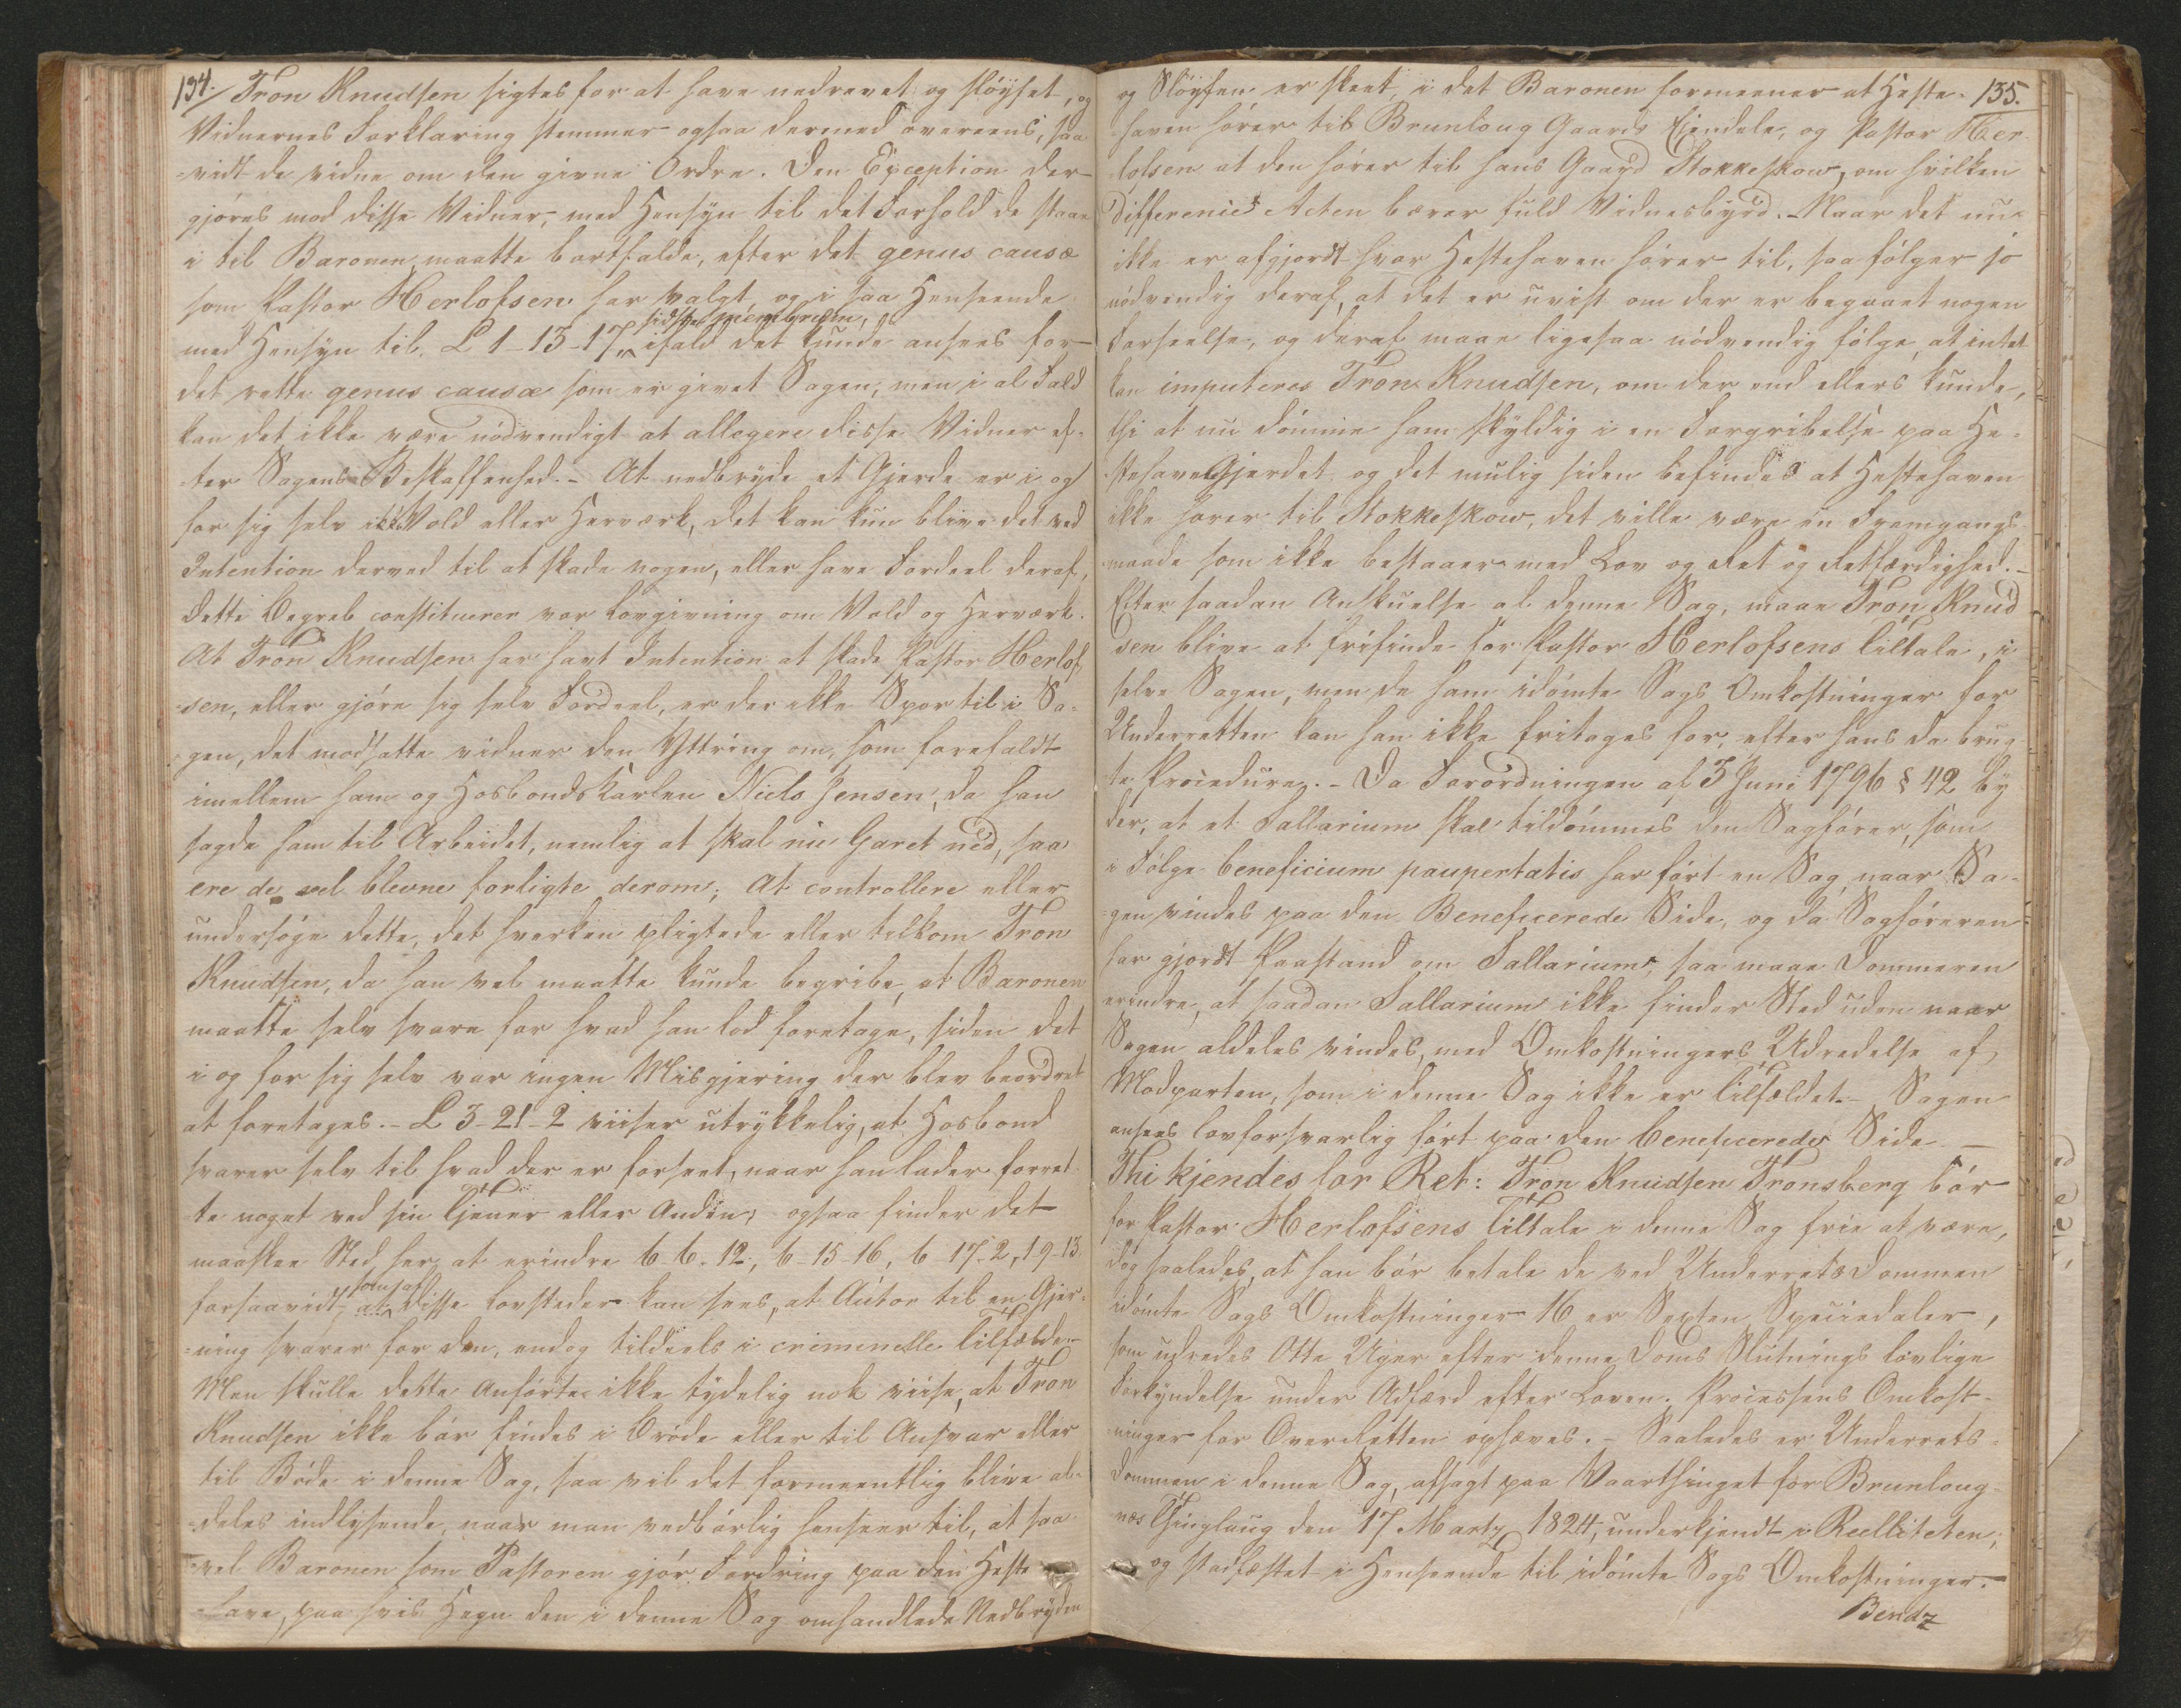 134. Tron Knudsen sigtes for at have nedrevet og sløyfet, og
Vidnernes Forklaring stemmer ogsaa dermed overeens, saa
vidt de vidne om den givne Ordre. Den Exception der
gjøres mod disse Vidner, med Hensyn til det Forhold de staae
i til Baronen maatte bortfalde, efter det genus causæ
som Pastor Herlofsen har valgt, og i saa Henseende
sidste membrum,
med Hensyn til L 1-13-17 ifald det kunde ansees for
det rette genus causæ som er givet Sagen, men i al Fald
kan det ikke være nødvendigt at allegere disse Vidner ef-
ter Sagens Beskaffenhed. - At nedbryde et Gjerde er i og
for sig selv ikke Vold eller Herværk, det kan kun blive det ved
Intention derved til at skade nogen, eller have Fordeel deraf,
dette Begreb constituerer vor Lovgivning om Vold og Herværk.
At Tron Knudsen har havt Intention at skade Pastor Herlof
sen, eller gjøre sig selv Fordeel, er der ikke Spor til i Sa-
gen, det modsatte vidner den Yttring om, som forefaldt
imellem ham og Hosbondskarlen Niels Jensen, da han
sagde ham til Arbeidet, nemlig at skal nu Gjæret ned, saa
ere de vel blevne forligte derom; At controllere eller
undersøge dette, det hverken pligtede eller tilkom Tron
Knudsen, da han vel maatte kunde begribe, at Baronen
maatte selv svare for hvad han lod foretage, siden det
i og for sig selv var ingen Misgjerning der blev beordret
at foretages. - L 3-21-2 viiser utrykkelig, at Hosbond
svarer selv til hvad der er forseet, naar han lader forret
te noget ved sin Tjener eller Anden; ogsaa finder det
maaskee Sted her at erindre 6-6-12, 6-15-16, 6-17-2, 1-9-13.
som af
forsaavidt disse Lovsteder kan sees, at Autor til en Gjer-
ning svarer for den, endog tildeels i criminelle Tilfælde.
Men skulle dette Anførte ikke tydelig nok viise, at Tron
Knudsen ikke bør findes i Brøde eller til Ansvar eller
til Bøde i denne Sag, saa vil det formeentlig blive al-
deles indlysende, naar man vedbørlig henseer til, at saa
vel Baronen som Pastoren gjør Fordring paa den Heste
have, paa hvis Hegn den i denne Sag omhandlede Nedbryden
135.
og Sløyfen er skeet, i det Baronen formeener at Heste-
haven hører til Brunloug Gaards Eiendele, og Pastor Her-
lofsen at den hører til hans Gaard Stokkeskow, om hvilken
Difference Acten bærer fuld Vidnesbyrd. - Naar det nu
ikke er afgjordt hvor Hestehaven hører til, saa følger jo
nødvendig deraf, at det er uvist om der er begaaet nogen
Forseelse, og deraf maae ligesaa nødvendig følge, at intet
kan imputeres Tron Knudsen, om der end ellers kunde,
thi at nu dømme ham skyldig i en Forgribelse paa He-
stehaveGjerdet og det mulig siden befindes at Hestehaven
ikke hører til Stokkeskow, det ville være en Fremgangs
maade som ikke bestaaer med Lov og Ret og Retfærdighed. -
Efter saadan Anskuelse al denne Sag, maae Tron Knud
sen blive at frifinde for Pastor Herlofsens Tiltale, i
selve Sagen, men de ham idømte Sags Omkostninger for
Underretten kan han ikke fritages for, efter hans da brug
te Procedure. - Da Forordningen af 3 Juni 1796 § 42 by
der, at et Sallarium skal tildømmes den Sagfører, som
i Følge beneficium paupertatis har ført en Sag, naar Sa-
gen vindes paa den Beneficerede Side, og da Sagføreren
har gjordt Paastand om Sallarium, saa maae Dommeren
erindre, at saadan Sallarium ikke finder Sted uden naar
Sagen aldeles vindes, med Omkostningers Udredelse af
Modparten, som i denne Sag ikke er Tilfældet. - Sagen
ansees lovforsvarlig ført paa den beneficerede Side. -
Thi kjendes for Ret: Tron Knudsen Tronsberg bør
for Pastor Herlofsens Tiltale i denne Sag frie at være,
dog saaledes, at han bør betale de ved Underrets Dommen
idømte Sags Omkostninger 16 er Sexten Speciedaler,
som udredes Otte Uger efter denne Doms Slutnings lovlige
Forkyndelse under Adfærd efter Loven. Processens Omkost-
ninger for Overretten ophæves. - Saaledes er Underrets-
dommen i denne Sag, afsagt paa Vaarthinget for Brunloug-
næs Thinglaug den 17 Martz 1824, underkjendt i Reelliteten,
og stadfæstet i Henseende til idømte Sags Omkostninger.
Bendz